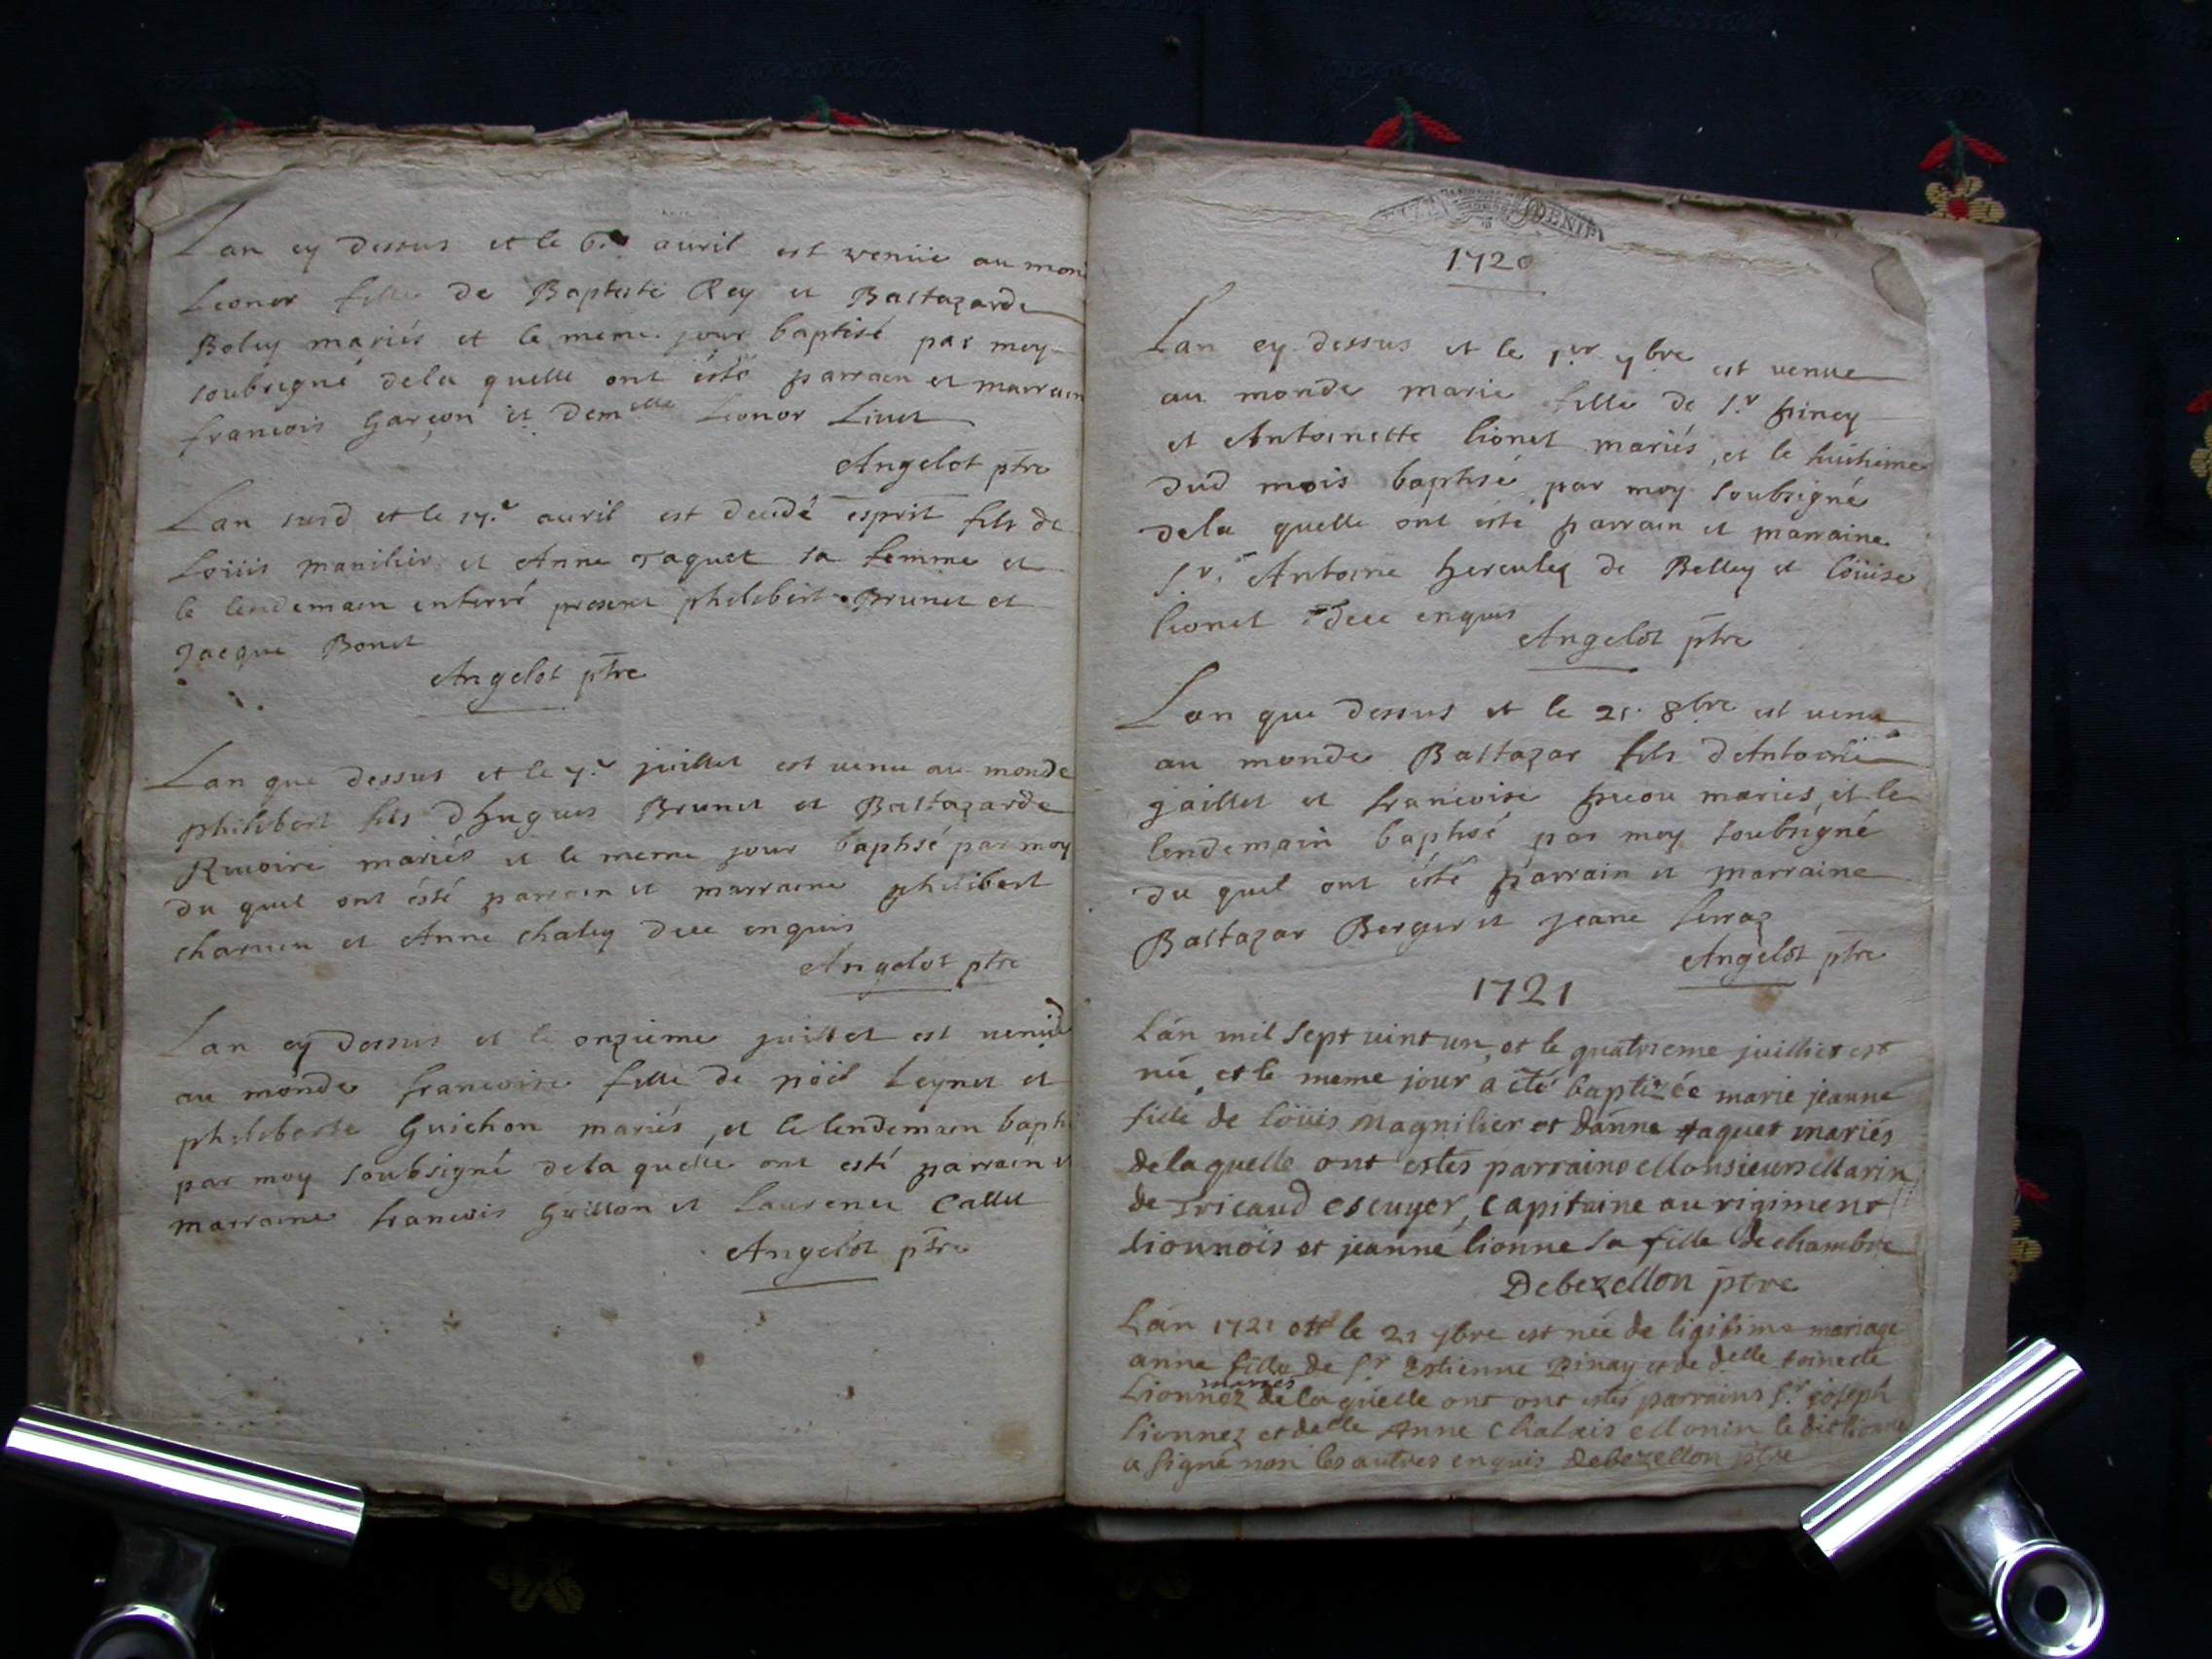 Lan cy dessus et le 6.e auril est venüe au mon
Leonor fille de Baptiste Rey et Baltazarde
Boley mariés et le meme jour baptisé par moy
soubsigné dela quelle ont ésté parrain et marrain
francois Garçon et demelle Leonor Livet
Angelot ptre
Lan susd et le 17.e auril est decedé esprit fils de
Loüis manilier et Anne Jaquet sa femme et
le lendemain enterré present philibert Brunet et
Jacque Bonet
Angelot ptre
Lan que dessus et le 7.e juillet est venu au monde
philibert fils dhugues Brunet et Baltazarde
Riuoire mariés et le meme jour baptisé par moy
du quel ont ésté parrain et marraine philibert
et Anne chaley dece enquis
Angelot ptre
Lan cy dessus et le onzieme juillet est venüe
au monde francoise fille de nöel Leynet et
philiberte Guichon mariés, et le lendemain bapti
par moy soubsigné dela quelle ont esté parrain et
marraine francois Guillon et Laurence Callet
Angelot ptre
DENIE
1720
Lan cy dessus et le 1er 7bre est venue
au monde marie fille de s.r piney
et Antoinette lionet mariés, et le huitieme
dud mois baptisé par moy soubsigné
dela quelle ont esté parrain et marraine
s.r Antoine hercules de Belley et löuise
lionet dece enquis
Angelot ptre
Lan que dessus et le 21. 8bre est venu
au monde Baltazar fils dAntoine
jaillet et francoise mariés, et le
lendemain baptisé par moy soubsigné
du quel ont ésté parrain et marraine
Baltazar Berger et jeane serraz
Angelot ptre
1721
Lan mil sept vint un, et le quatrieme juilliet est
née et le meme jour a été baptizée marie jeanne
fille de löuis Magnilier et danne jaquet mariés
de laquelle ont estés parrains Monsieur Marin
de Tricaud escuyer, capitaine au rigiment
lionnois et jeanne lionne sa fille de chambre
Debezellon ptre
Lan 1721 et le 21 7bre est née de ligitime mariage
anne fille de s.r Estienne Pinay et de delle toinette
Lionnez mariés de laquelle ont ont estés parrains s.r joseph
lionnez et delle Anne Chalais Monin le dit lionne
a signé non les autres enquis Debezellon ptre